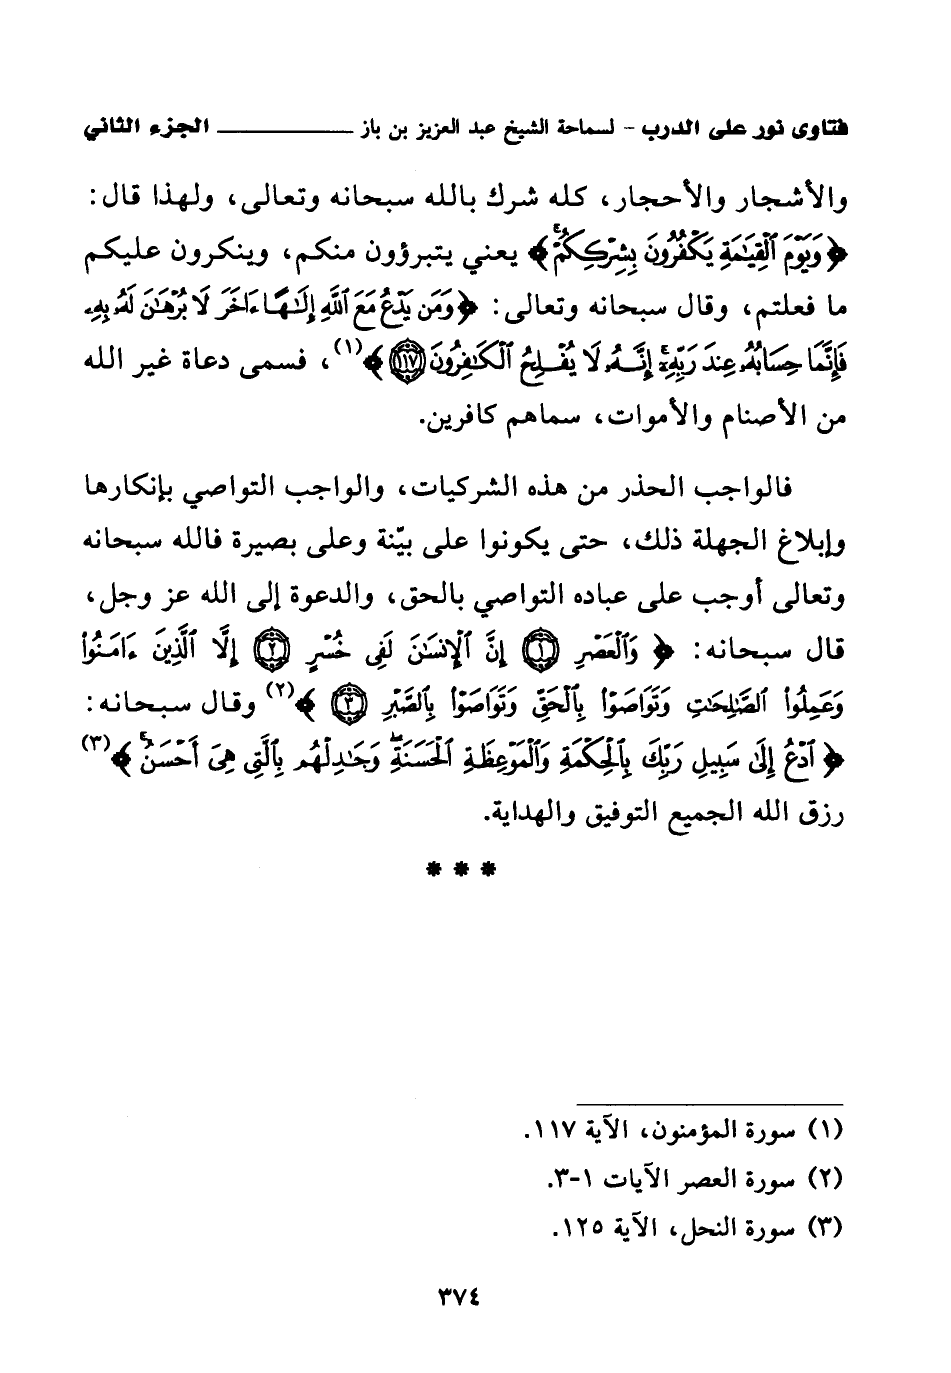 فتاوى نور على الدرب - لسماحة الشيخ عبد العزيز بن باز ـــــــــــــ الجزء الثاني
والأشجار والأحجار، كله شرك بالله سبحانه وتعالى، ولهذا قال:
﴿وَيَوْمَ ٱلْقِيَٰمَةِ يَكْفُرُونَ بِشِرْكِكُمْ ۚ﴾ يعني يتبرؤون منكم، وينكرون عليكم
ما فعلتم، وقال سبحانه وتعالى: ﴿وَمَن يَدْعُ مَعَ ٱللَّهِ إِلَٰهًا ءَاخَرَ لَا بُرْهَٰنَ لَهُۥ بِهِۦ
فَإِنَّمَا حِسَابُهُۥ عِندَ رَبِّهِۦٓ ۚ إِنَّهُۥ لَا يُفْلِحُ ٱلْكَٰفِرُونَ ١١٧﴾(١)، فسمى دعاة غير الله
من الأصنام والأموات، سماهم كافرين.
فالواجب الحذر من هذه الشركيات، والواجب التواصي بإنكارها
وإبلاغ الجهلة ذلك، حتى يكونوا على بيّنة وعلى بصيرة فالله سبحانه
وتعالى أوجب على عباده التواصي بالحق، والدعوة إلى الله عز وجل،
قال سبحانه: ﴿ وَٱلْعَصْرِ ١ إِنَّ ٱلْإِنسَٰنَ لَفِى خُسْرٍ ٢ إِلَّا ٱلَّذِينَ ءَامَنُوا۟
وَعَمِلُوا۟ ٱلصَّٰلِحَٰتِ وَتَوَاصَوْا۟ بِٱلْحَقِّ وَتَوَاصَوْا۟ بِٱلصَّبْرِ ٣ ﴾(٢) وقال سبحانه:
﴿ ٱدْعُ إِلَىٰ سَبِيلِ رَبِّكَ بِٱلْحِكْمَةِ وَٱلْمَوْعِظَةِ ٱلْحَسَنَةِ ۖ وَجَٰدِلْهُم بِٱلَّتِى هِىَ أَحْسَنُ ۚ ﴾(٣)
رزق الله الجميع التوفيق والهداية.
* * *
(١) سورة المؤمنون، الآية ١١٧.
(٢) سورة العصر الآيات ١-٣.
(٣) سورة النحل، الآية ١٢٥.
٣٧٤